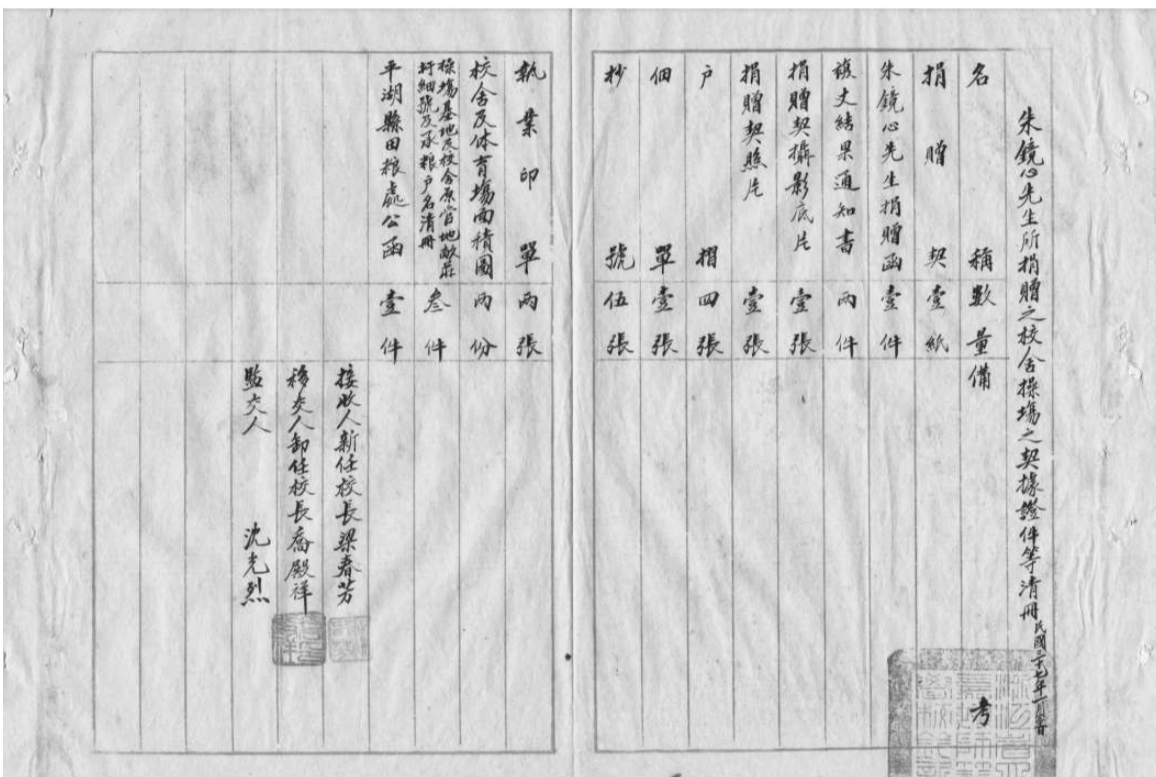 朱鏡心先生所捐贈之校舍操場之契據證件等清冊
民國三十七年一月
名稱 數量 備考
捐贈契 壹紙
朱鏡心先生捐贈函 壹件
複丈結果通知書 兩件
捐贈契攝影底片 壹張
捐贈契照片 壹張
户摺 四張
佃單 壹張
抄號 伍張
執業印單 兩張
校舍及体育場面積圖 兩份
操場基地及校舍原管地畝莊
圩細號及承粮户名清冊 叁件
平湖縣田粮處公函 壹件
接收人新任校長梁春芳
移交人卸任校長喬殿祥
監交人 沈光烈